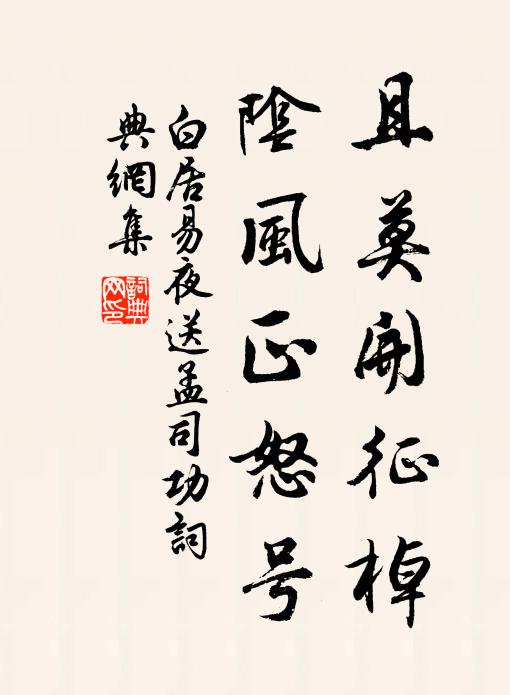 且莫開征棹
陰風正怒号
白居易夜送孟司功詞
典網集
詞典網印